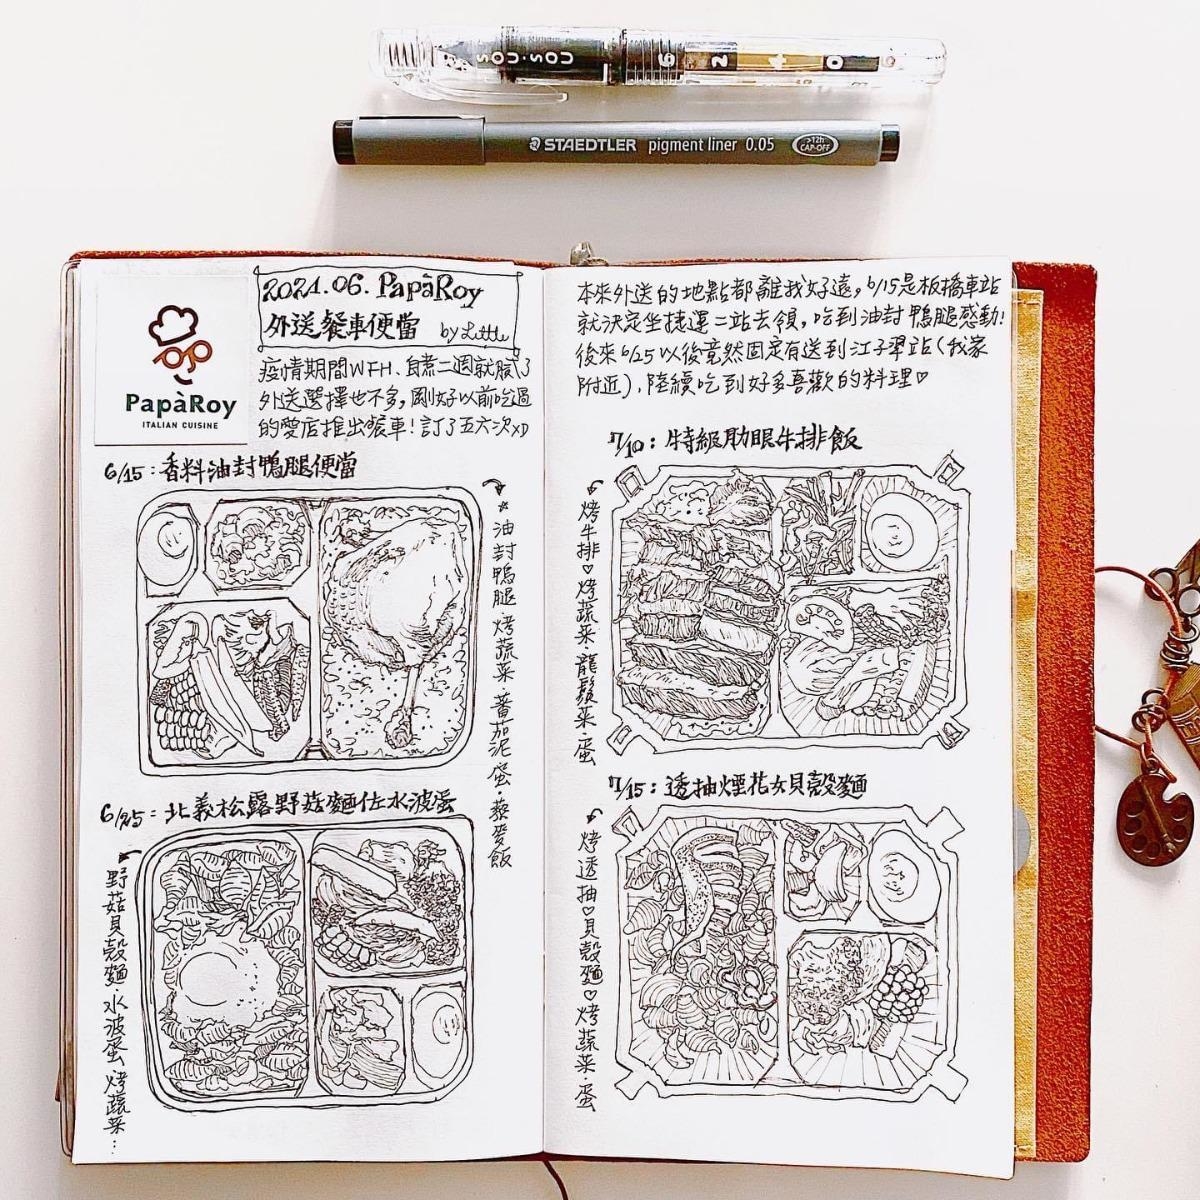 SOU·SOU
6 2 4 0
STAEDTLER pigment liner 0.05
>12h
CAP-OFF
PapàRoy
ITALIAN CUISINE
2021.06. PapàRoy
外送餐車便當 by Little
疫情期間WFH、自煮二週就膩了
外送選擇也不多,剛好以前吃過
的愛店推出餐車!訂了五六次XD
6/15:香料油封鴨腿便當
油封鴨腿 烤蔬菜 蕃茄泥 蛋·藜麥飯
6/25:北義松露野菇麵佐水波蛋
野菇貝殼麵 水波蛋·烤蔬菜…
本來外送的地點都離我好遠,6/15是板橋車站
就決定坐捷運二站去領,吃到油封鴨腿感動!
後來6/25以後竟然固定有送到江子翠站(我家
附近),陸續吃到好多喜歡的料理♡
7/10:特級肋眼牛排飯
烤牛排♡烤蔬菜·龍鬚菜·蛋
7/15:透抽煙花女貝殼麵
烤透抽♡貝殼麵♡烤蔬菜·蛋